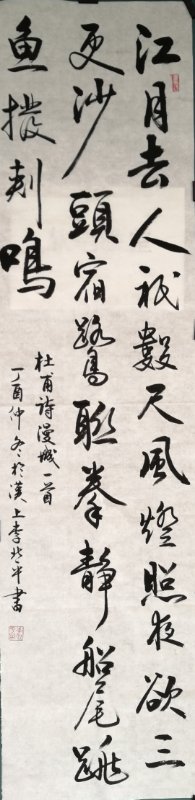 江月去人衹數尺風燈照夜欲三
更沙頭宿鷺聯拳靜船尾跳
魚撥剌鳴
杜甫詩漫城一首
丁酉仲冬於漢上李書